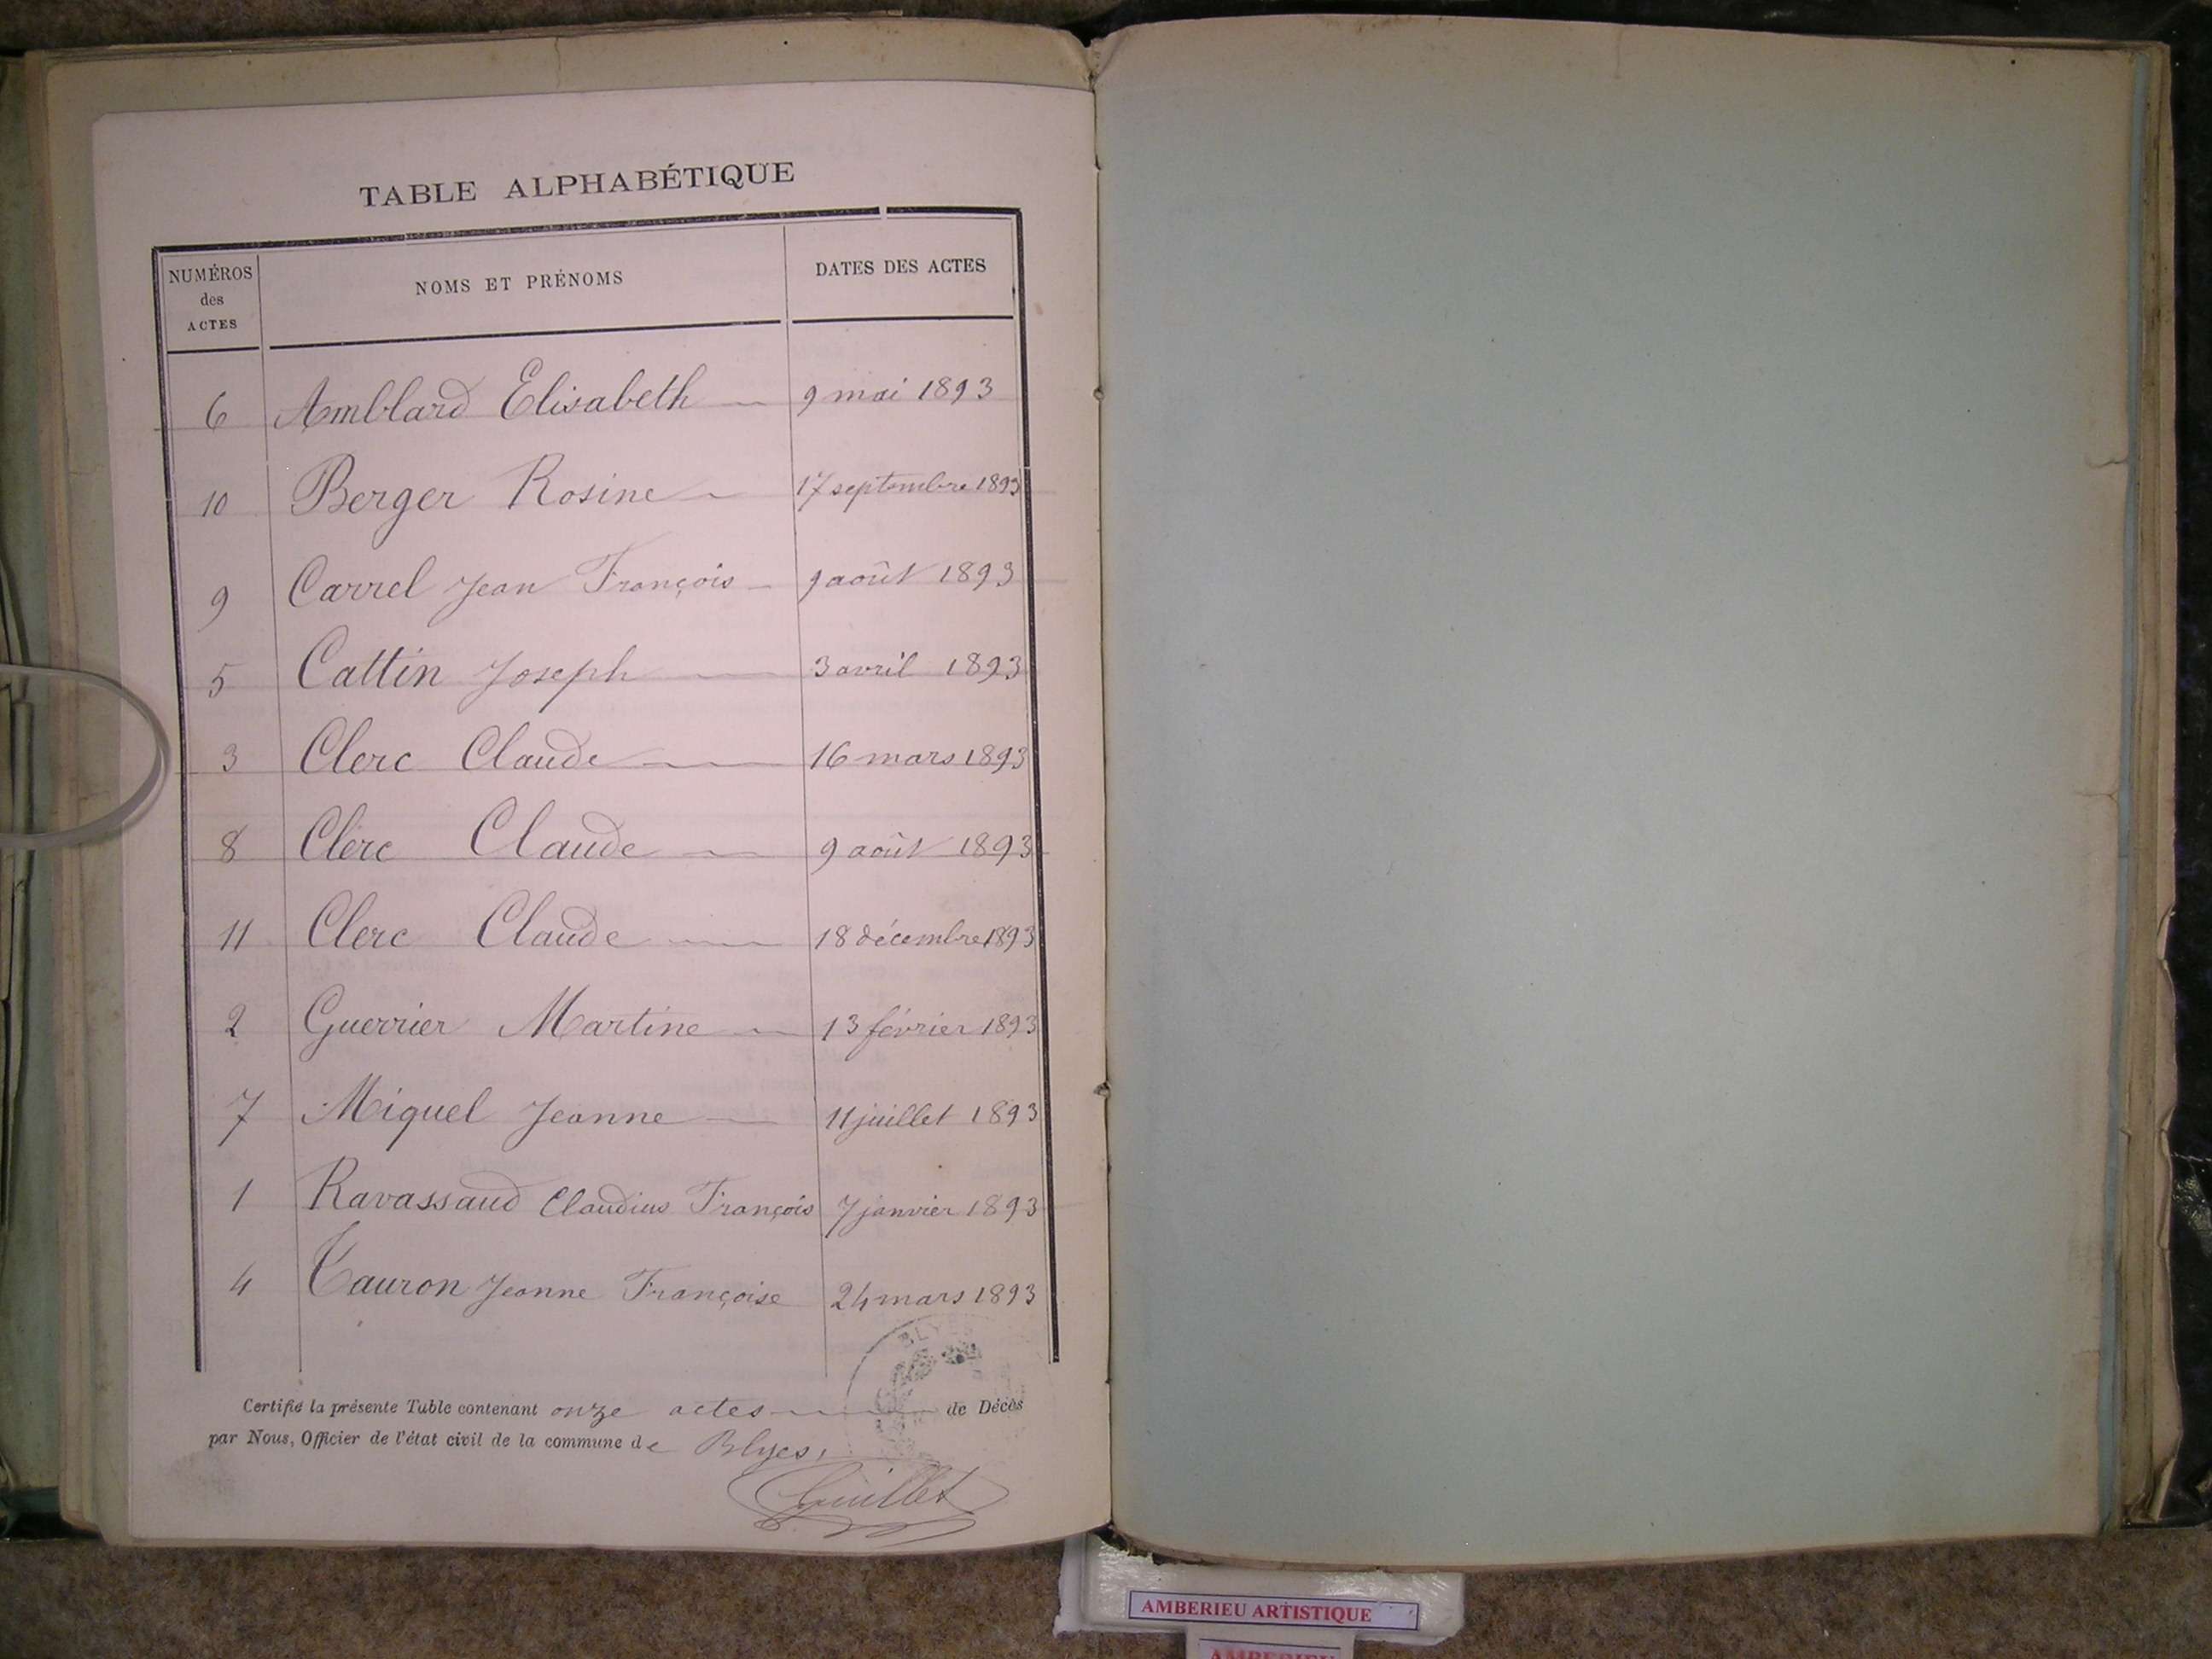 TABLE ALPHABÉTIQUE
NUMÉROS des ACTES NOMS ET PRÉNOMS DATES DES ACTES
6 Amblard Elisabeth 9 mai 1893
10 Berger Rosine 17 septembre 1893
9 Carrel Jean François 9 août 1893
5 Cattin Joseph 3 avril 1893
3 Clerc Claude 16 mars 1893
8 Clerc Claude 9 août 1893
11 Clerc Claude 18 décembre 1893
2 Guerrier Martine 13 février 1893
7 Miquel Jeanne 11 juillet 1893
1 Ravassaud Claudius François 7 janvier 1893
4 Tauron Jeanne Françoise 24 mars 1893
Certifié la présente Table contenant onze actes de Décès
par Nous, Officier de l'état civil de la commune de Blyes,
Guillet
AMBERIEU ARTISTIQUE
AMBERIEU